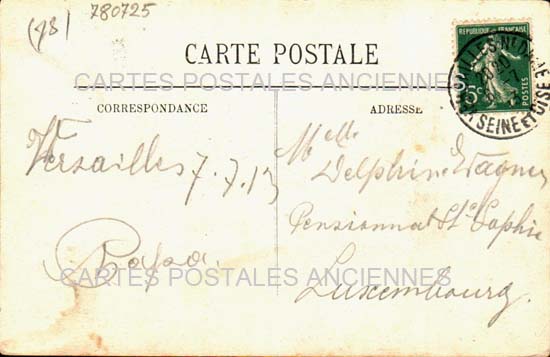 (78) 780725
CARTE POSTALE
CARTES POSTALES ANCIENNES
CORRESPONDANCE
ADRESSE
REPUBLIQUE FRANÇAISE
5c POSTES
SEINE ET OISE
Versailles 7.7.13
Papa.
Melle
Delphine Wagner
Pensionnat Ste Sophie
Luxembourg.
CARTES POSTALES ANCIENNES